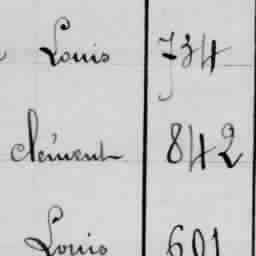 Louis 734
Clément 842
Louis 601